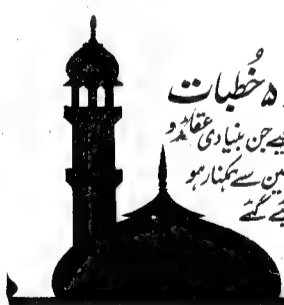 ۵ خُطبات
جن بنیادی عقائد و
سے ہمکنار ہو
گئے